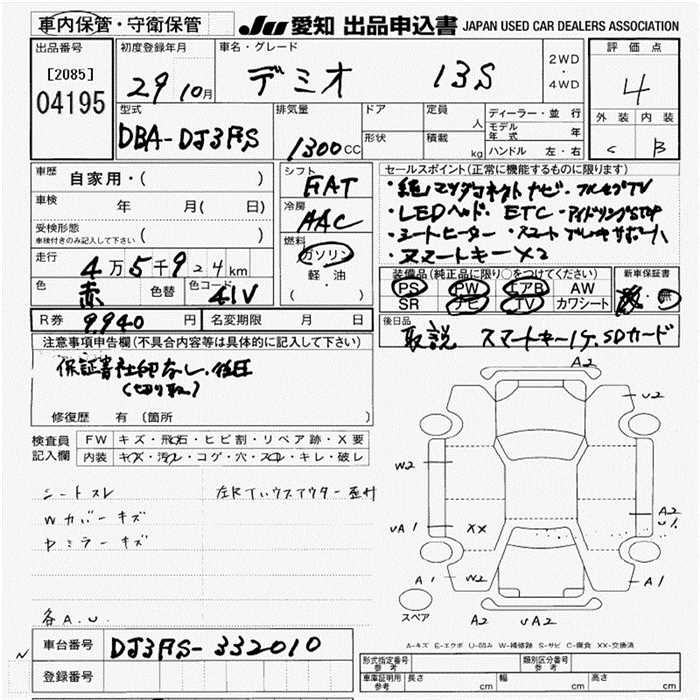 車内保管・守衛保管 JU 愛知 出品申込書 JAPAN USED CAR DEALERS ASSOCIATION
出品番号 初度登録年月 車名・グレード 評価点
[2085] 29 10月 デミオ 13S 2WD・4WD 4
04195 型式 排気量 ドア 定員 人 ディーラー・並行 外装 内装
モデル年式 年
DBA-DJ3FS 1300CC 形状 積載 kg ハンドル 左・右 C B
車歴 自家用・( ) シフト FAT セールスポイント(正常に機能するものに限ります)
・純マツダコネクトナビ・フルセグTV
車検 年 月( 日) 冷房 AAC ・LEDヘッド・ETC・アイドリングSTOP
受検形態
車検付きのみ記入して下さい ( ) 燃料 ガソリン ・シートヒーター・スマートブレーキサポート
・スマートキー×2
走行 4万5千924km 軽・油 装備品(純正品に限り○をつけてください) 新車保証書
( ) PS PW エアB AW 無
色 赤 色替 色コード 41V SR ナビ TV カワシート
R券 9,940円 名変期限 月 日 後日品
取説 スマートキー1ケ.SDカード
注意事項申告欄(不具合内容等は具体的に記入して下さい)
保証書社印なし.後日
(切り取)
修復歴 有 (箇所 )
検査員記入欄 FW キズ・飛石・ヒビ割・リペア跡・X要
内装 キズ・汚れ・コゲ・穴・スレ・キレ・破レ
シートスレ
Wカバーキズ
Dミラーキズ
各A.U.
A2
U2
W2
A2
UA1 XX U1
A1 W2 A1
スペア A2 UA2
A-キズ E-エクボ U-凹み W-補修跡 S-サビ C-腐食 XX-交換済
車台番号 DJ3FS-332010
登録番号
形式指定番号 参考 類別区分番号 参考
車庫証明用 参考 長さ cm 幅 cm 高さ cm